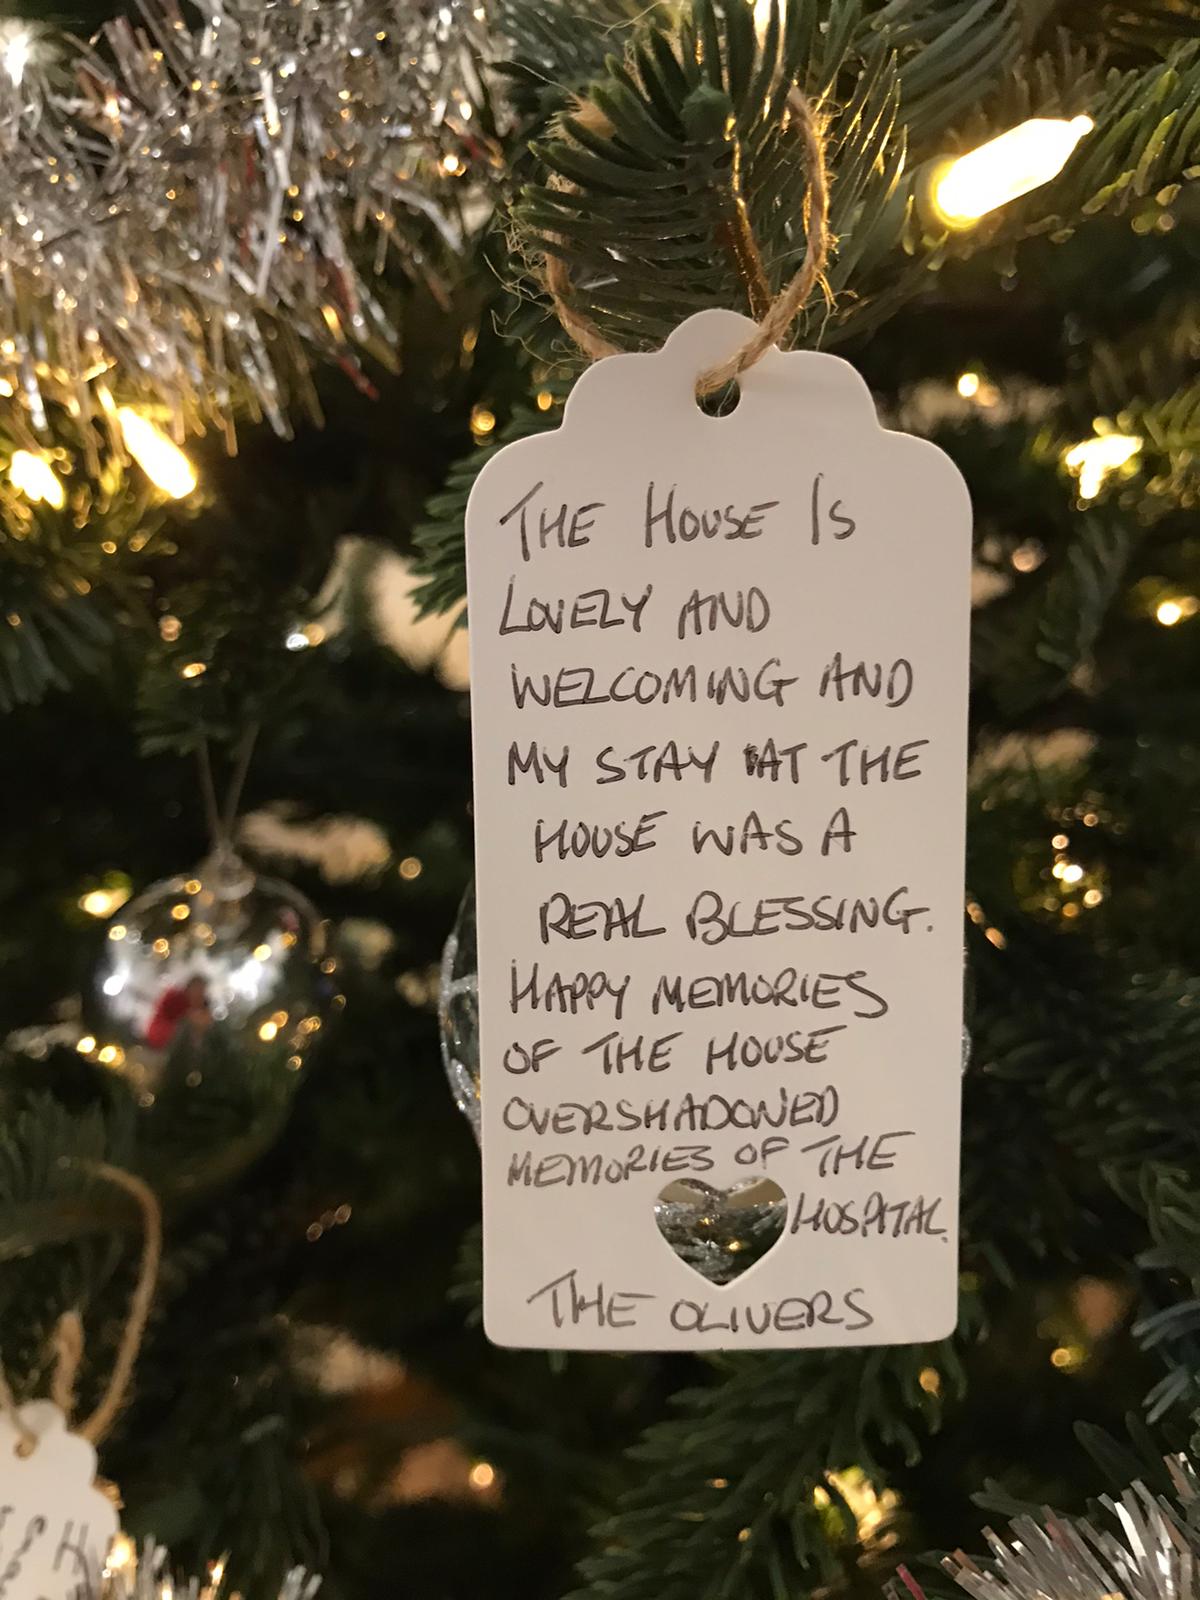 THE HOUSE IS
LOVELY AND
WELCOMING AND
MY STAY AT THE
HOUSE WAS A
REAL BLESSING.
HAPPY MEMORIES
OF THE HOUSE
OVERSHADOWED
MEMORIES OF THE
HOSPITAL.
THE OLIVERS